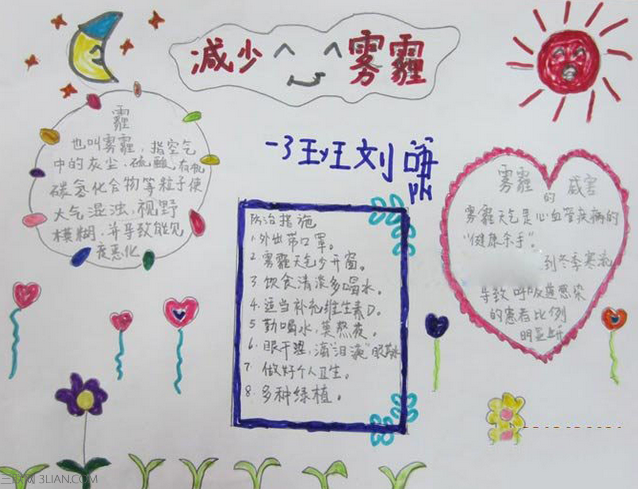 减少
雾霾
霾
也叫雾霾，指空气
中的灰尘、硫酸、有机
碳氢化合物等粒子使
大气混浊，视野
模糊，并导致能见
度恶化
一3班刘
防治措施
1.外出带口罩。
2.雾霾天气少开窗。
3.饮食清淡多喝水。
4.适当补充维生素D。
5.勤喝水，莫熬夜。
6.眼干涩，滴"泪液"眼药水
7.做好个人卫生。
8.多种绿植。
雾霾
的
雾霾天气是心血管疾病的
"健康杀手"。
到冬季寒流
导致呼吸道感染
的患者比例
明显上升
3LIAN.COM